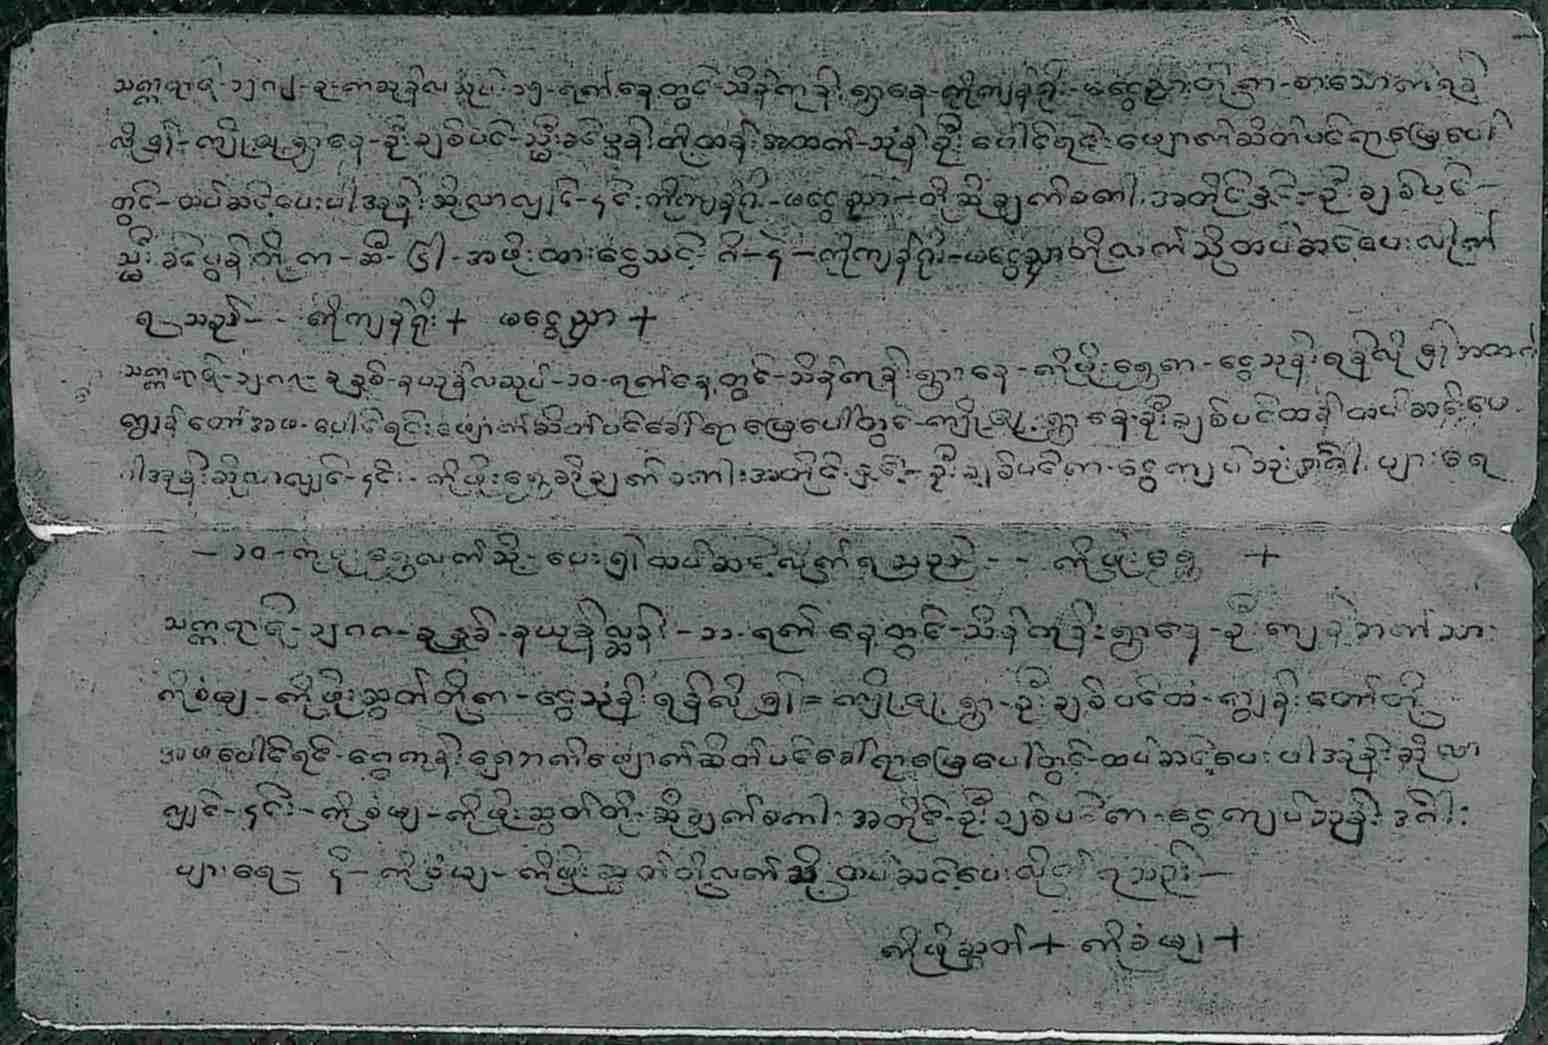 သက္ကရာဇ်-၁၂၇၂-ခု-တဆုန်လဆုပ်-၁၅-ရက်နေ့တွင်-သိန်ကုန်းရွာနေ-ကိုကျန်ရိုး-မငွေညှာတို့က-စားသောက်ရန်
လို၍-ကျိုချုရွာနေ-ဦးချစ်ပင်-ညှီးခင်ပွန်းတို့ထန်းအထက်-သုံန်ဦးပေါင်ရင်းဖျောက်ဆိတ်ပင်ရာမြေပေါ်
တွင်-ထပ်ဆင့်ပေးပါအုန်းဆိုလာလျှင်-၎င်းကိုကျန်ရိုး-မငွေညှာ-တို့ဆိုချက်စကားအတိုင်းနှင့်-ဦးချစ်ပင်-
ညှီးခင်ပွန်တို့က-ဆီ-အဖိုးထားငွေသင့်-ဂိ-နဲ-ကိုကျန်ရိုး-မငွေညှာတို့လက်သို့ထပ်ဆင့်ပေးလိုက်
ရသည်-- ကိုကျန်ရိုး+ မငွေညှာ+
သက္ကရာဇ်-၁၂၇၇-ခုနှစ်-နယုန်လဆုပ်-၁၀-ရက်နေ့တွင်-သိန်ကုန်းရွာနေ-ကိုဖိုးရွှေက-ငွေသုန်းရန်လို၍အထက်
ကျွန်တော်အဖ-ပေါင်ရင်းဖျောက်ဆိတ်ပင်ခေါ်ရာမြေပေါ်တွင်-ကျိုချုရွာနေဦးချစ်ပင်ထန်ထပ်ဆင့်ပေ
ပါအုန်းဆိုလာလျှင်-၎င်း-ကိုဖိုးရွှေဆိုချက်စကားအတိုင်းနှင့်-ဦးချစ်ပင်က-ငွေကျပ်ဒင်္ဂါးပျားရေ
-၁၀-ကိုဖိုးရွှေလက်သို့-ပေး၍ထပ်ဆင့်လိုက်ရသည်-- ကိုဖိုးရွှေ +
သက္ကရာဇ်-၁၂၇၇-ခုနှစ်-နယုန်လ္ဆန်း-၁၁-ရက်နေ့တွင်-သိန်ကုန်းရွာနေ-ဦးကျန်ဘက်သား
ကိုစံဖျ-ကိုဖိုးသွတ်တို့က-ငွေသုံန်ရန်လို၍=ကျိုချုရွာ-ဦးချစ်ပင်ထံ-ကျွန်းတော်တို့
အဖပေါင်ရင်-ငွေကုန်းရှေ့ဘက်ဖျောက်ဆိတ်ပင်ခေါ်ရာမြေပေါ်တွင်-ထပ်ဆင့်ပေးပါအုံန်းဆိုလာ
လျှင်-၎င်း-ကိုစံဖျ-ကိုဖိုးသွတ်တို့-ဆိုချက်စကားအတိုင်-ဦးချစ်ပင်က-ငွေကျပ်ဒင်္ဂါး
ပျားရေ-၅ိ-ကိုစံဖျ-ကိုဖိုးသွတ်တို့လက်သို့ထပ်ဆင့်ပေးလိုက်ရသည်-
ကိုဖိုးသွတ်+ ကိုစံဖျ+